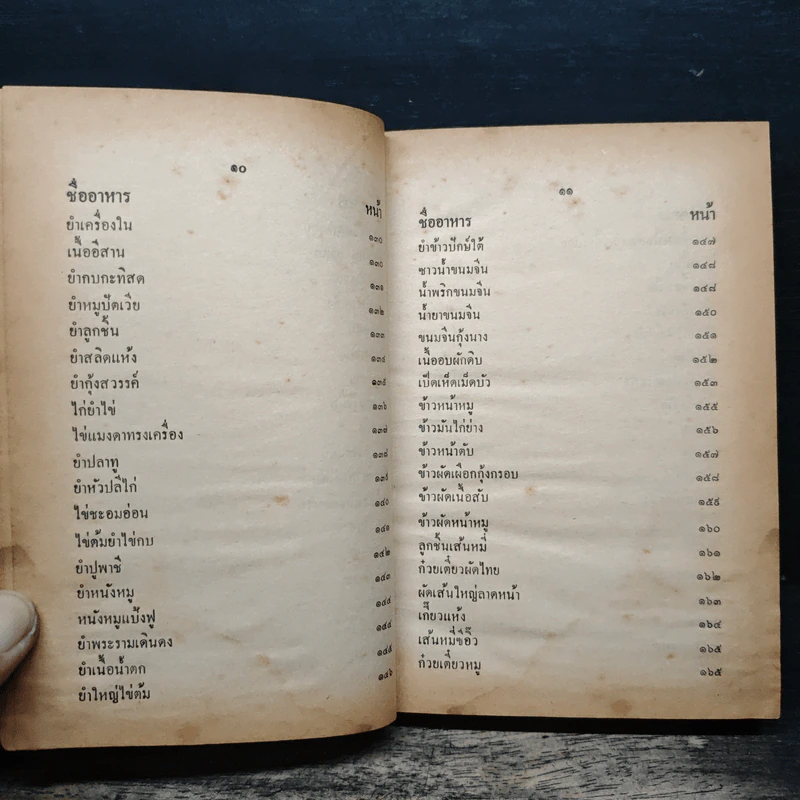 ๑๐
ชื่ออาหาร หน้า
ยำเครื่องใน ๑๓๐
เนื้ออีสาน ๑๓๐
ยำกบกะทิสด ๑๓๑
ยำหมูปัตเวีย ๑๓๒
ยำลูกชิ้น ๑๓๓
ยำสลิดแห้ง ๑๓๔
ยำกุ้งสวรรค์ ๑๓๕
ไก่ยำไข่ ๑๓๖
ไข่แมงดาทรงเครื่อง ๑๓๗
ยำปลาทู ๑๓๘
ยำหัวปลีไก่ ๑๓๙
ไข่ชะอมอ่อน ๑๔๐
ไข่ต้มยำไข่กบ ๑๔๑
ยำปูพาชี ๑๔๒
ยำหนังหมู ๑๔๓
หนังหมูแป้งฟู ๑๔๔
ยำพระรามเดินดง ๑๔๔
ยำเนื้อน้ำตก ๑๔๕
ยำใหญ่ไข่ต้ม ๑๔๖
๑๑
ชื่ออาหาร หน้า
ยำข้าวปักษ์ใต้ ๑๔๗
ซาวน้ำขนมจีน ๑๔๘
น้ำพริกขนมจีน ๑๔๘
น้ำยาขนมจีน ๑๕๐
ขนมจีนกุ้งนาง ๑๕๑
เนื้ออบผักดิบ ๑๕๒
เป็ดเห็ดเม็ดบัว ๑๕๓
ข้าวหน้าหมู ๑๕๕
ข้าวมันไก่ย่าง ๑๕๖
ข้าวหน้าตับ ๑๕๗
ข้าวผัดเผือกกุ้งกรอบ ๑๕๘
ข้าวผัดเนื้อสับ ๑๕๙
ข้าวผัดหน้าหมู ๑๖๐
ลูกชิ้นเส้นหมี่ ๑๖๑
ก๋วยเตี๋ยวผัดไทย ๑๖๒
ผัดเส้นใหญ่ลาดหน้า ๑๖๓
เกี๊ยวแห้ง ๑๖๔
เส้นหมี่ซีอิ๊ว ๑๖๕
ก๋วยเตี๋ยวหมู ๑๖๕